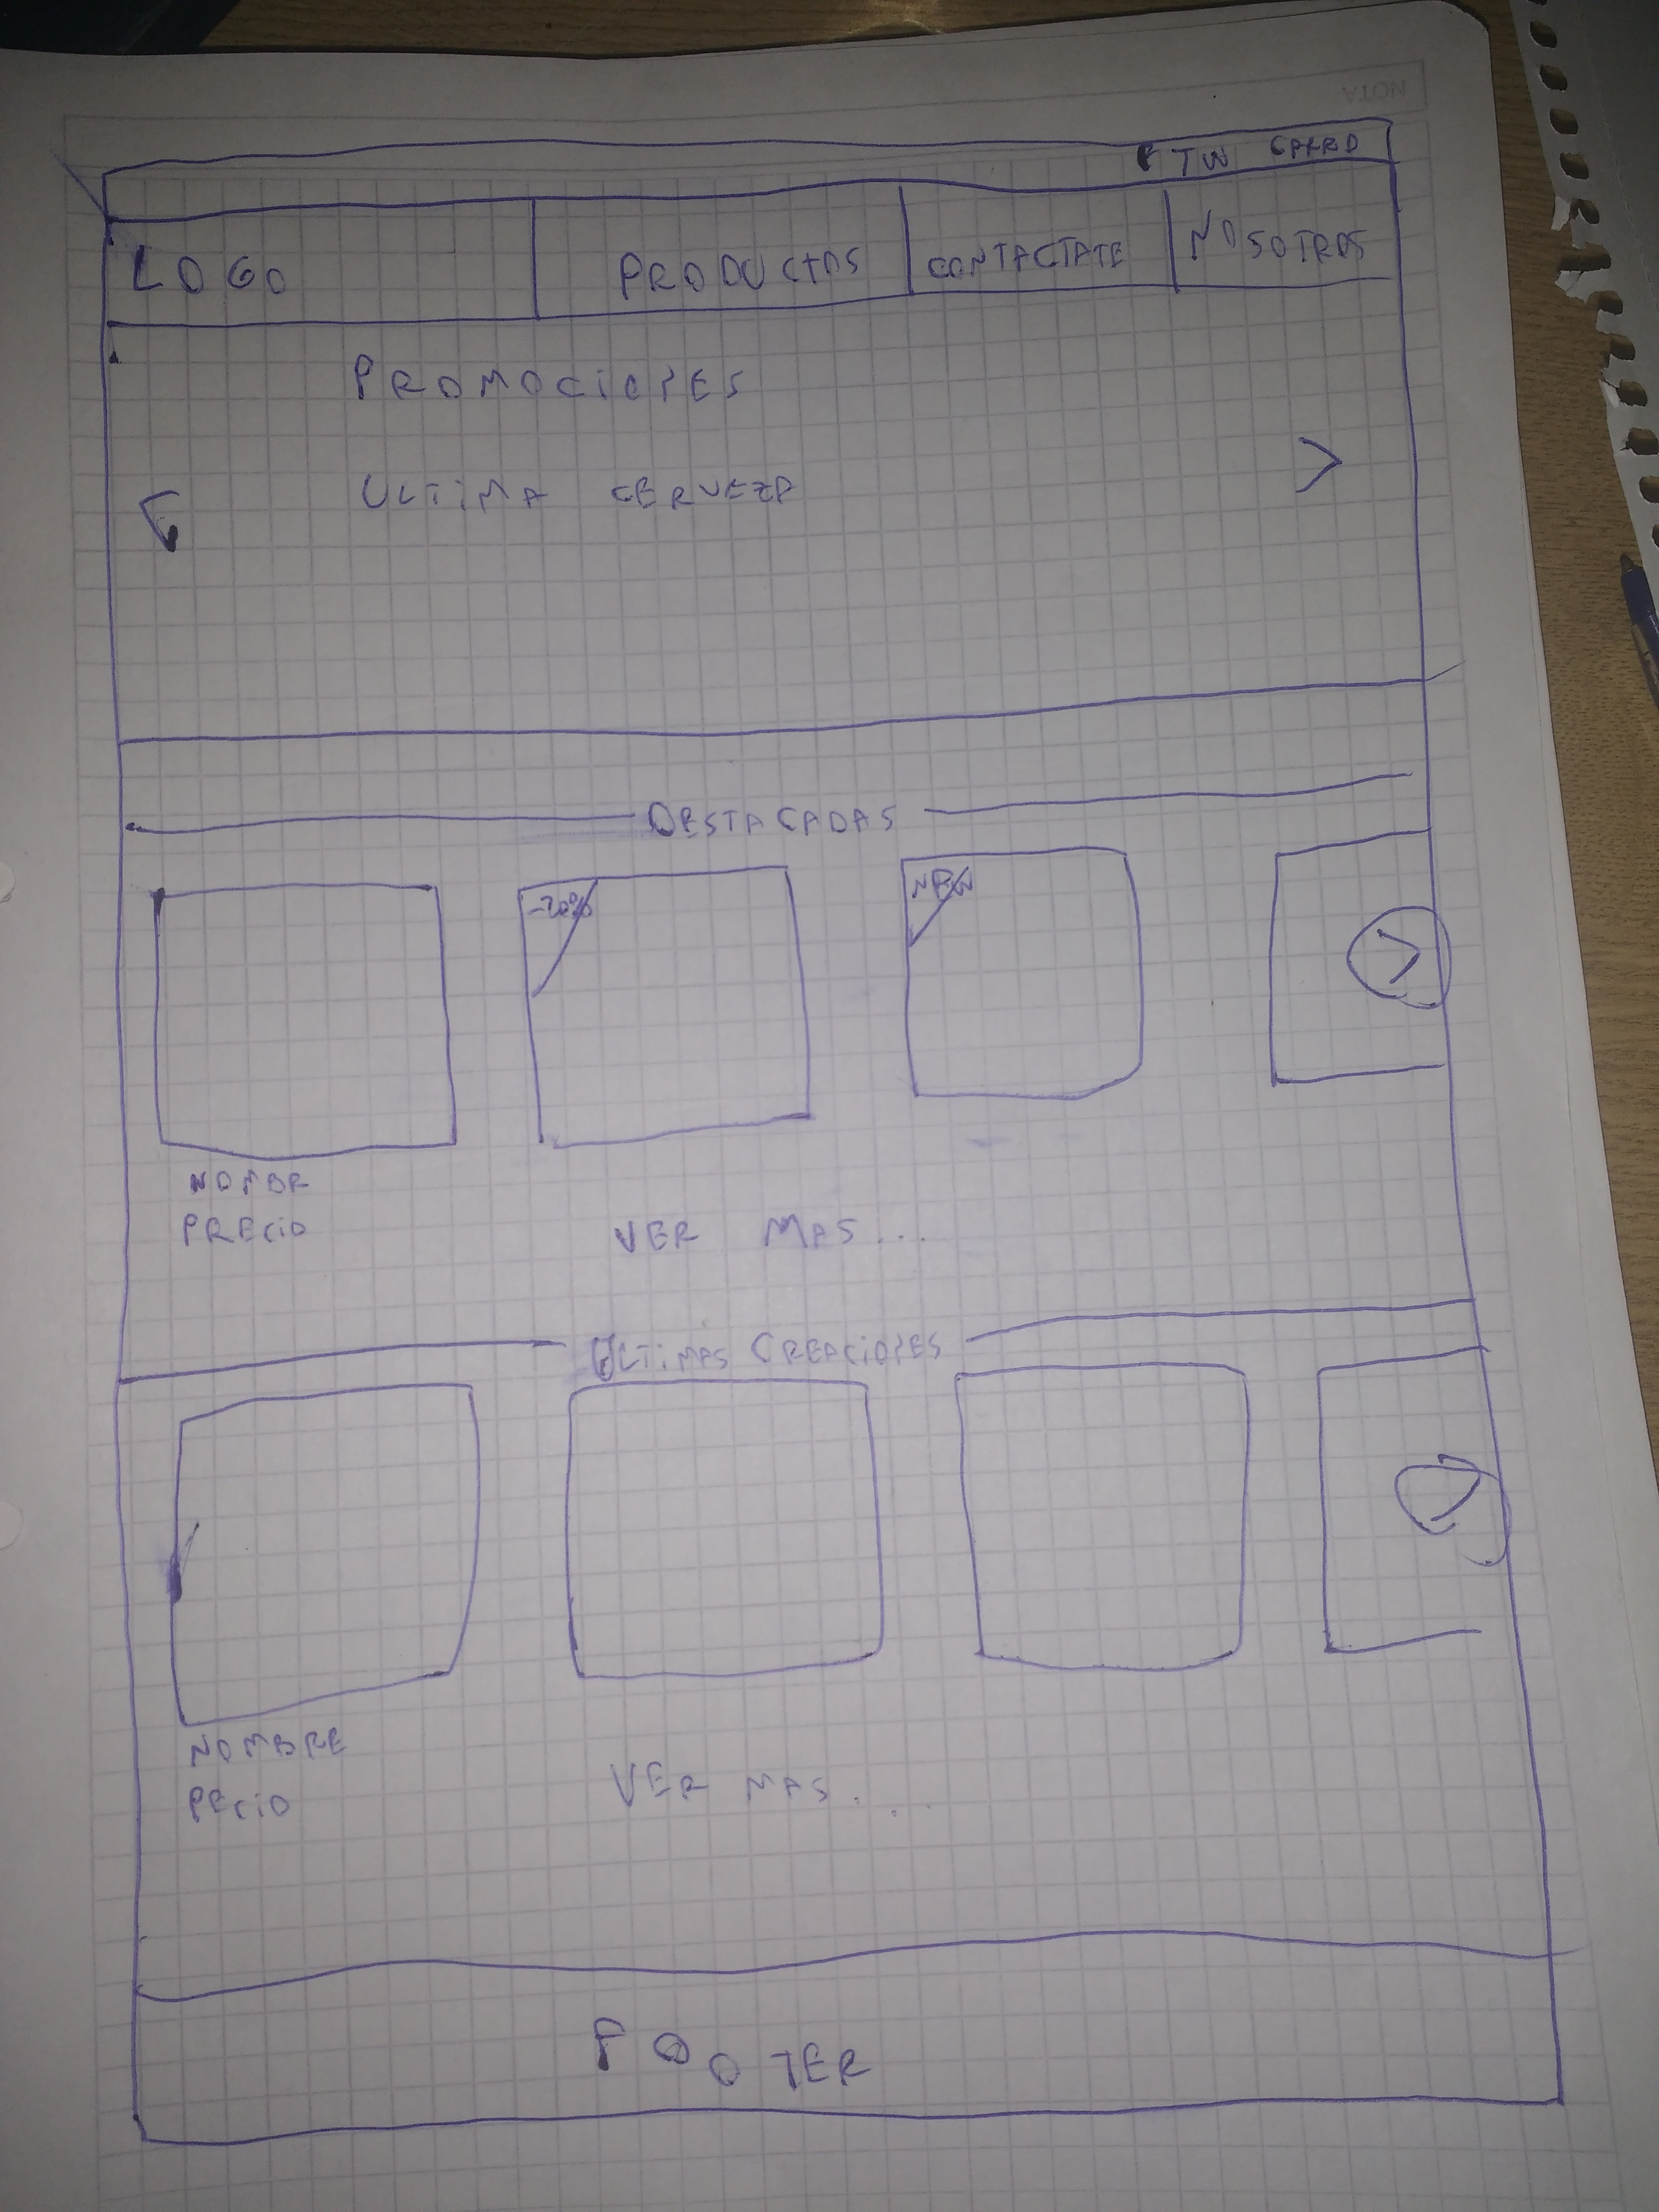 NOTA
F TW CARRO
LOGO PRODUCTOS CONTACTATE NOSOTROS
PROMOCIONES
ULTIMA CERVEZA
DESTACADAS
-20% NEW
NOMBR
PRECIO
VER MAS...
ULTIMAS CREACIONES
NOMBRE
PECIO
VER MAS...
FOOTER